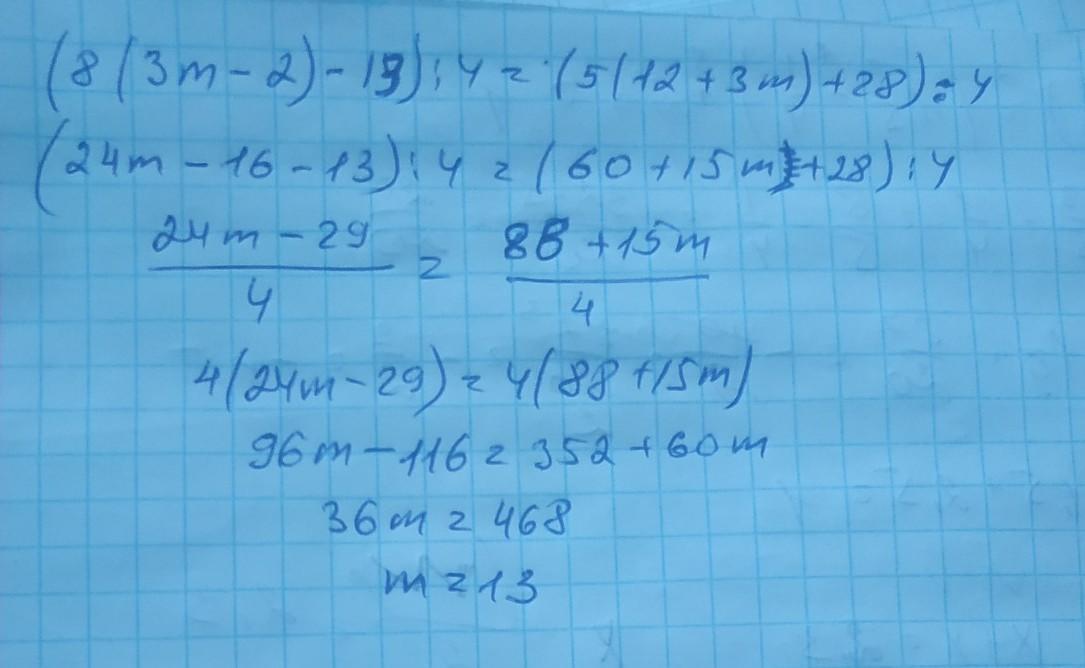 (8(3m-2)-13):4=(5(12+3m)+28):4
(24m-16-13):4=(60+15m+28):4
24m-29/4=88+15m/4
4(24m-29)=4(88+15m)
96m-116=352+60m
36m=468
m=13